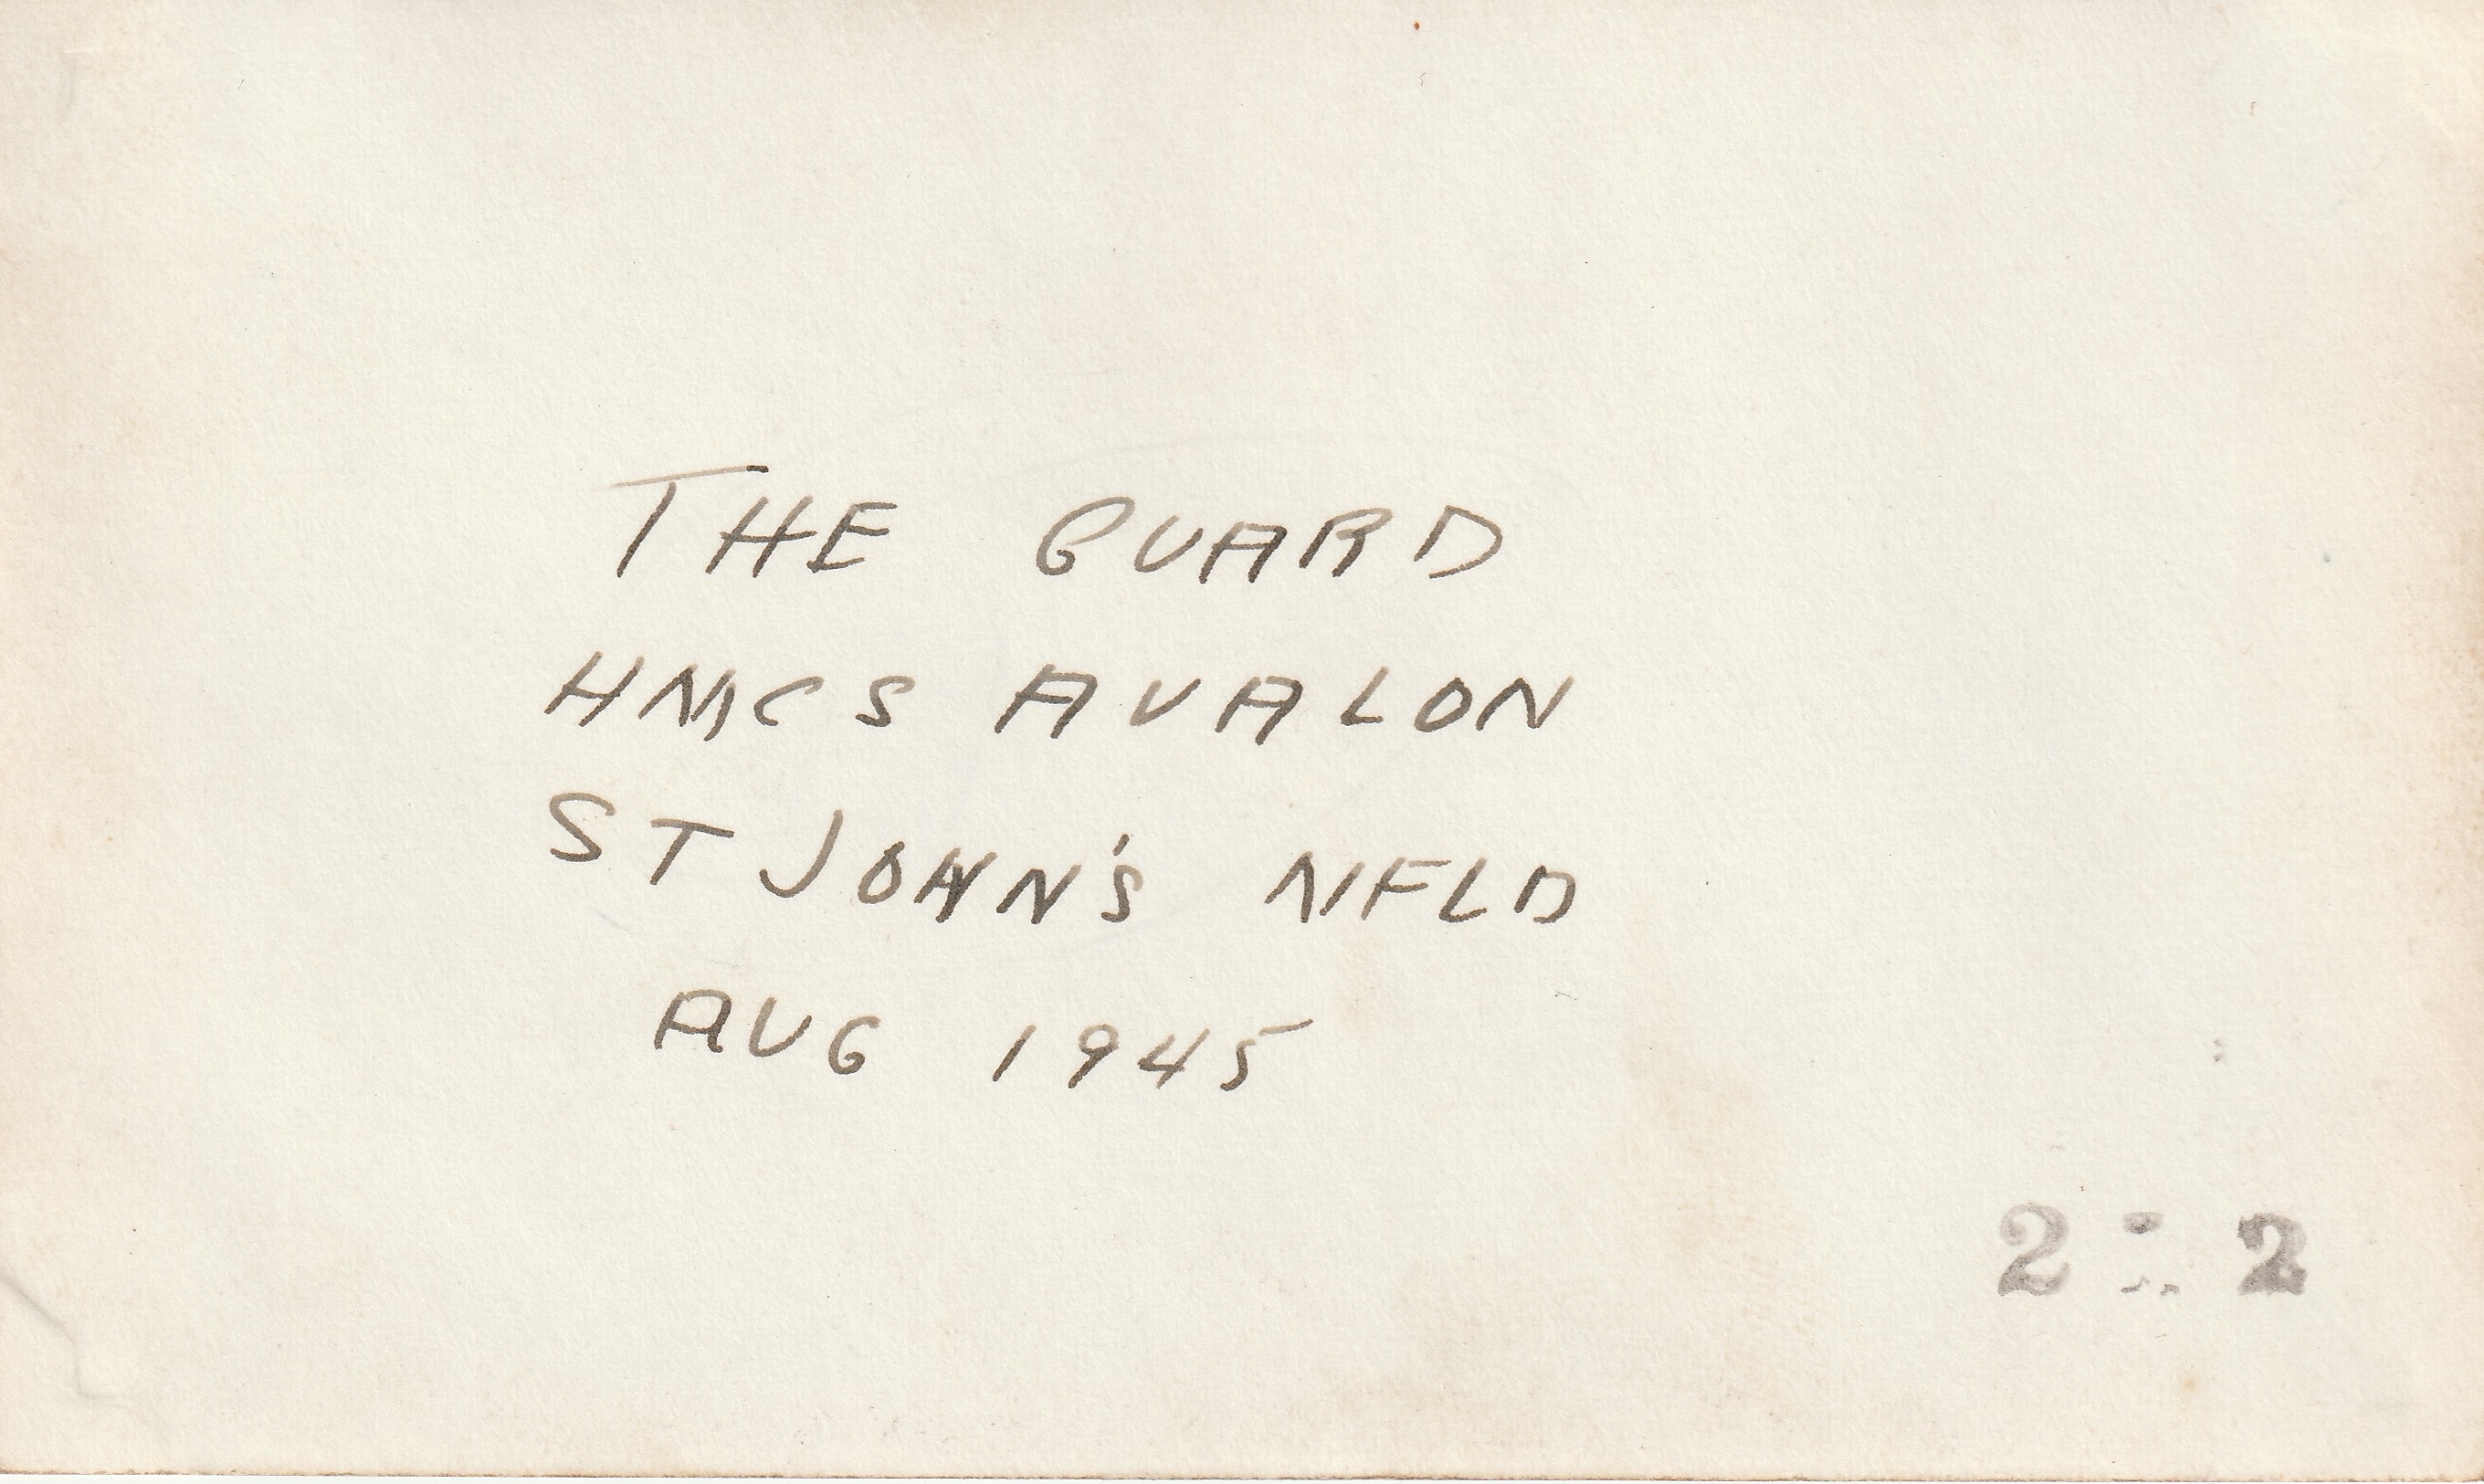 THE GUARD
HMCS AVALON
ST JOHN'S NFLD
AUG 1945
2 2